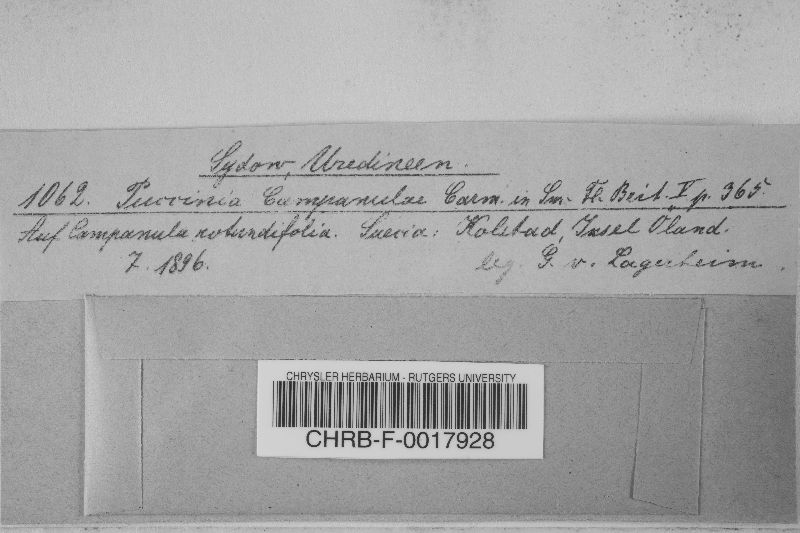 Sydow, Uredineen.
1062. Puccinia Campanulae Carm. in Sm. Fl. Brit. V p. 365.
Auf Campanula rotundifolia. Suecia: Kolstad, Insel Oland.
7. 1896.
leg. G. v. Lagerheim.
CHRYSLER HERBARIUM - RUTGERS UNIVERSITY
CHRB-F-0017928